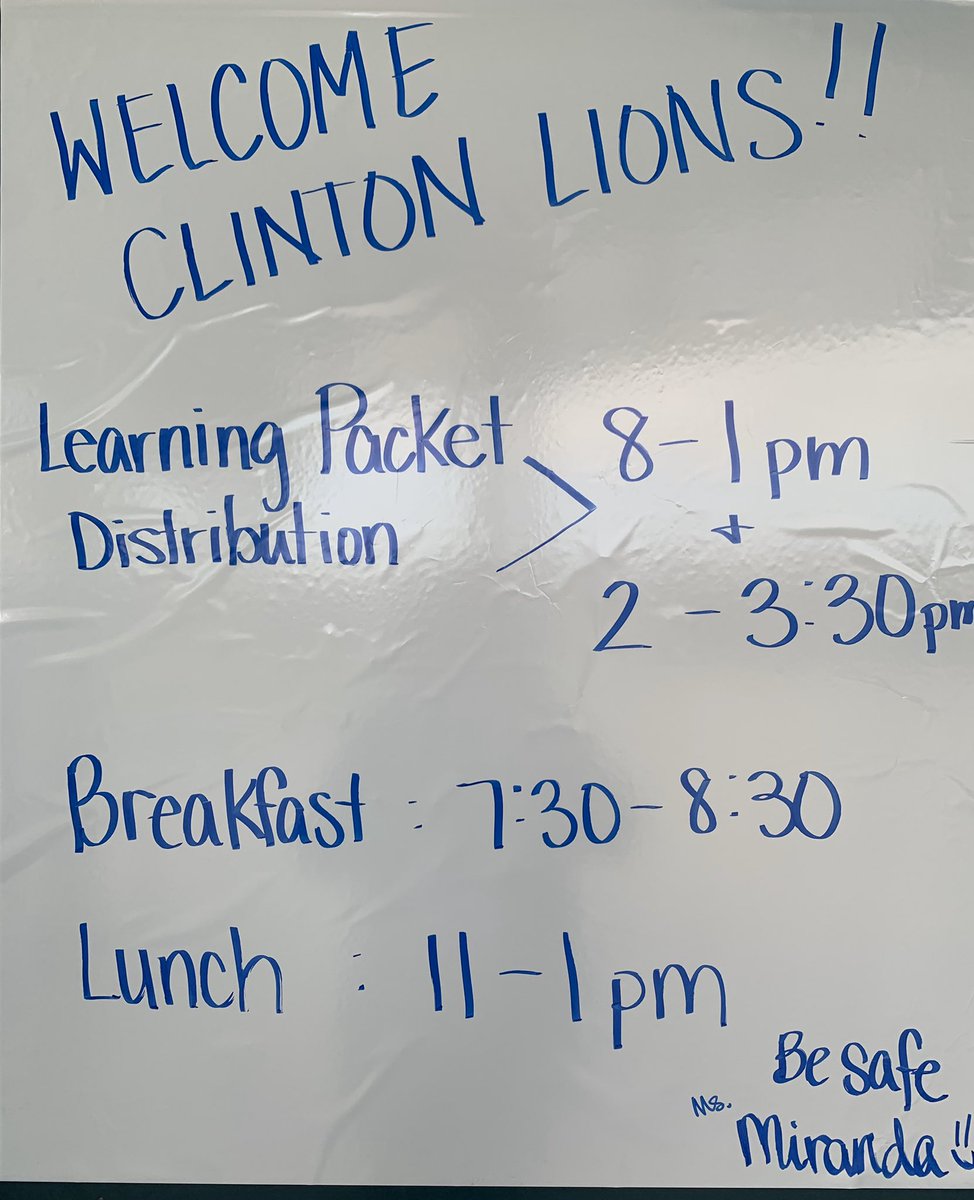 WELCOME
CLINTON LIONS!!
Learning Packet
Distribution
8-1pm
+
2 - 3:30pm
Breakfast : 7:30-8:30
Lunch : 11-1pm
Be safe
Ms.
Miranda